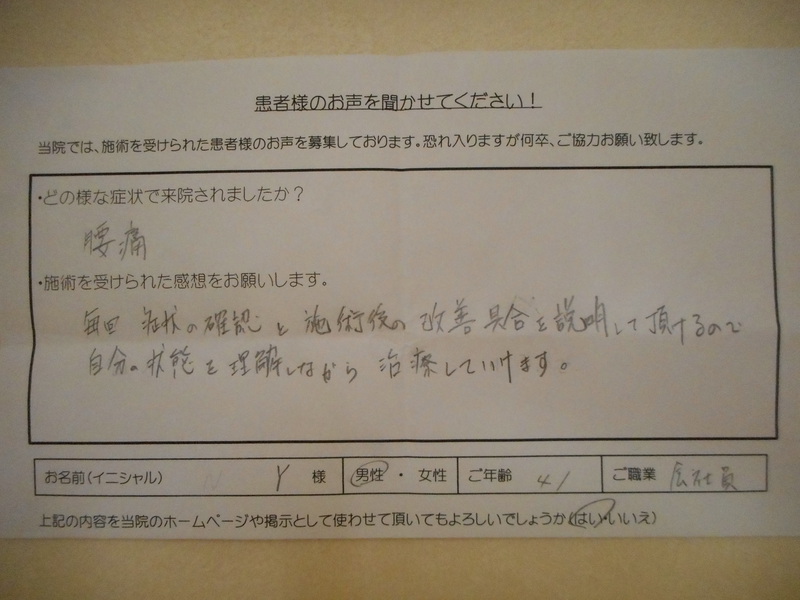 患者様のお声を聞かせてください！
当院では、施術を受けられた患者様のお声を募集しております。恐れ入りますが何卒、ご協力お願い致します。
・どの様な症状で来院されましたか？
腰痛
・施術を受けられた感想をお願いします。
毎回 症状の確認と施術後の改善具合を説明して頂けるので
自分の状態を理解しながら治療していけます。
お名前（イニシャル） Y 様 男性 ・ 女性 ご年齢 41 ご職業 会社員
上記の内容を当院のホームページや掲示として使わせて頂いてもよろしいでしょうか（はい・いいえ）